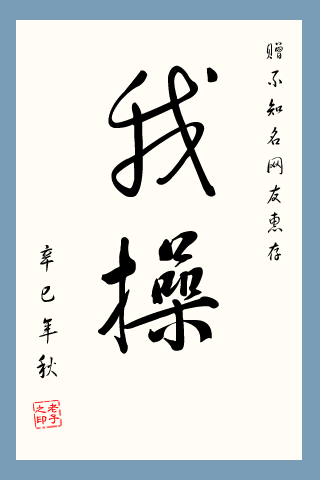 赠不知名网友惠存
我操
辛巳年秋
老子之印